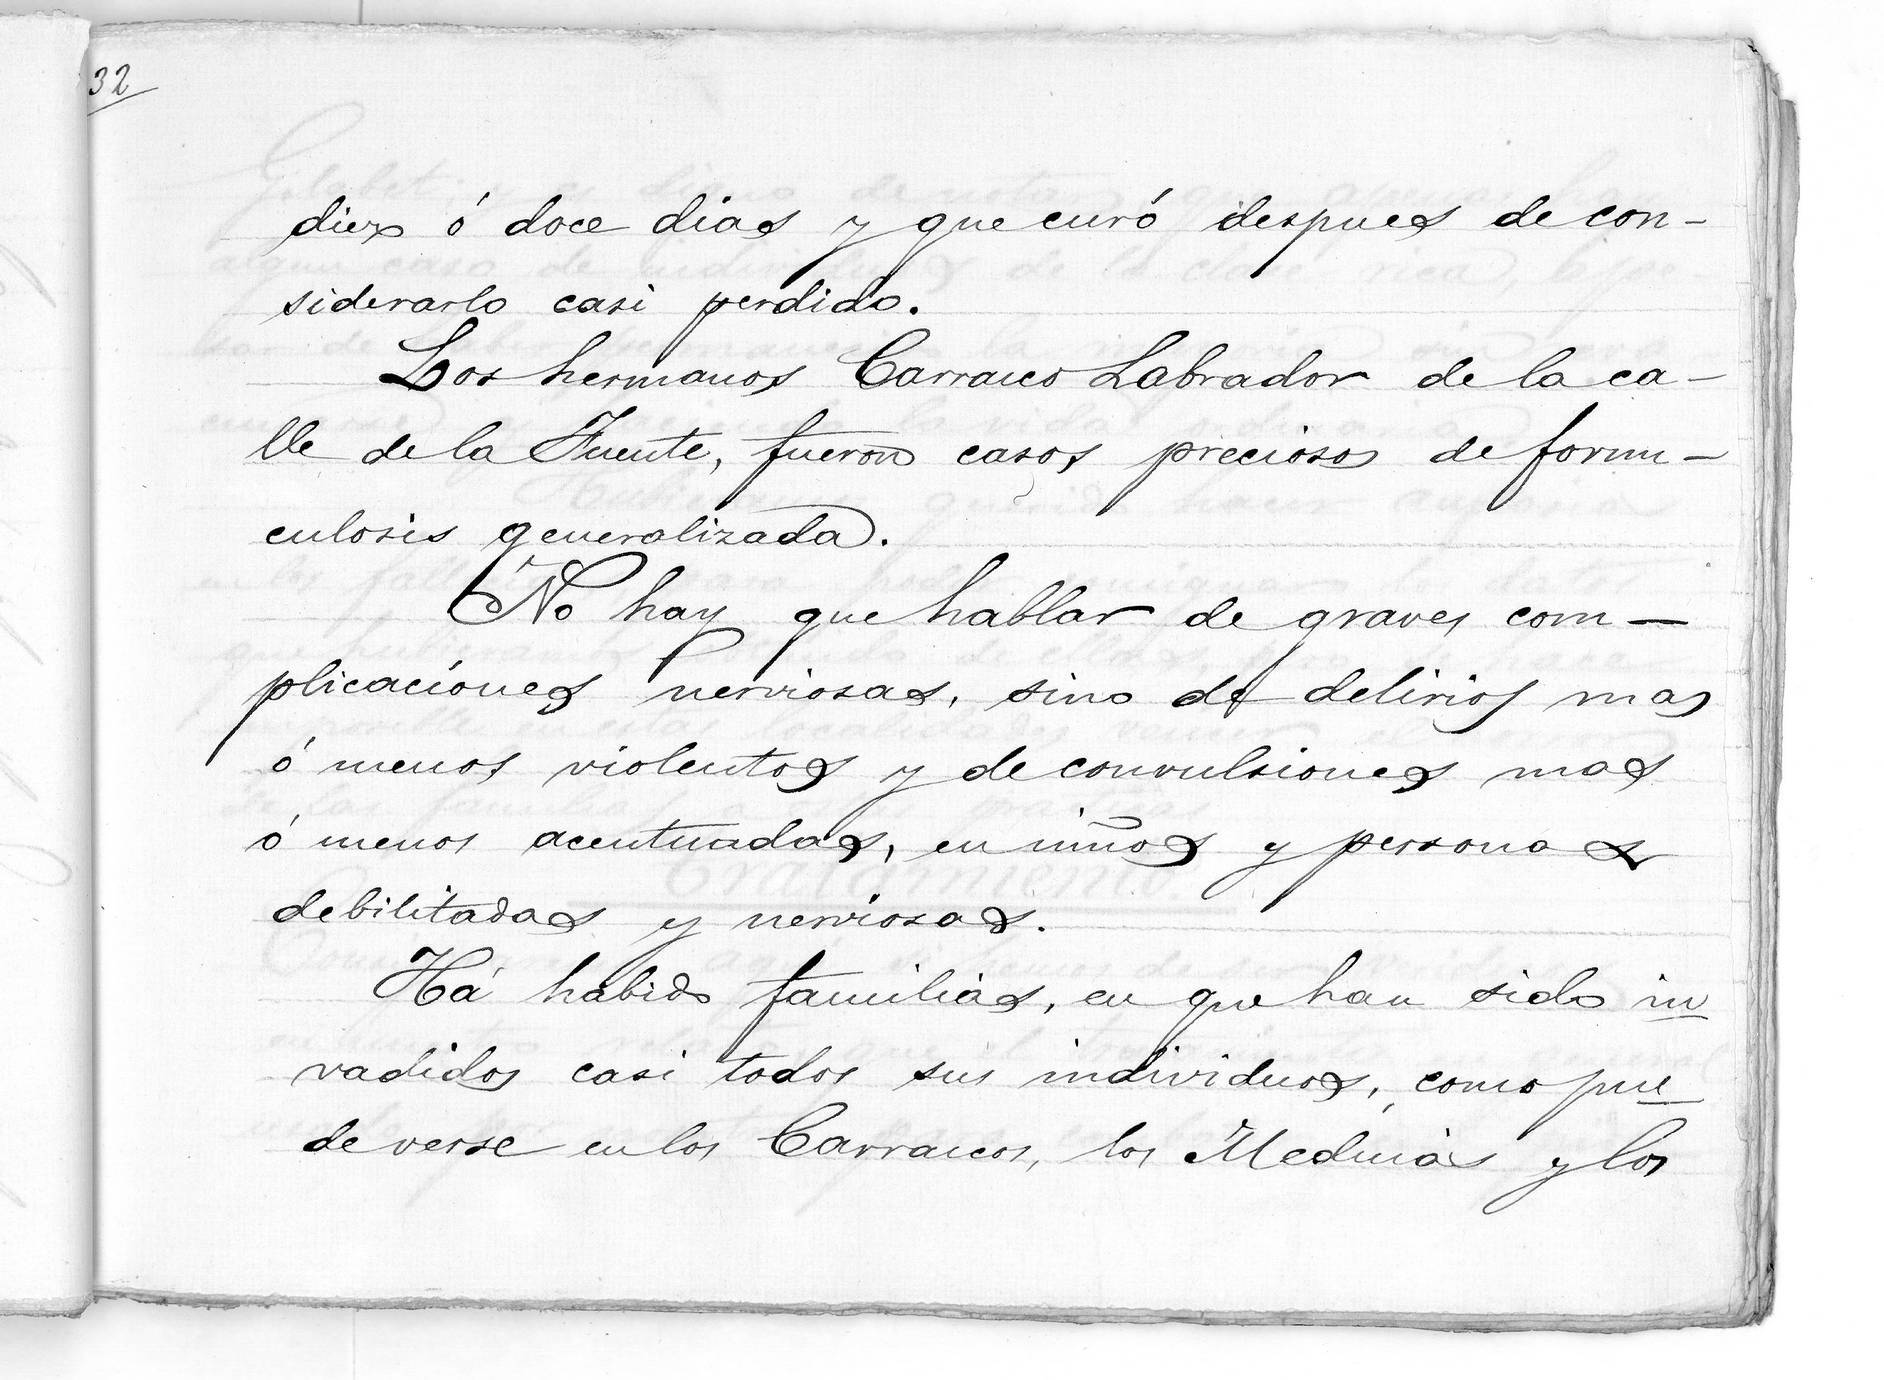 32
diez ó doce dias y que curó despues de con-
siderarlo casi perdido.
Los hermanos Carrasco Labrador de la ca-
lle de la Fuente, fueron casos preciosos de forun-
culosis generalizada.
No hay que hablar de graves com-
plicaciones nerviosas, sino de delirios mas
ó menos violentos y de convulsiones mas
ó menos acentuadas, en niños y personas
debilitadas y nerviosas.
Há habido familias, en que han sido in
vadidos casi todos sus individuos, como pue
de verse en los Carrascos, los Medinas y los